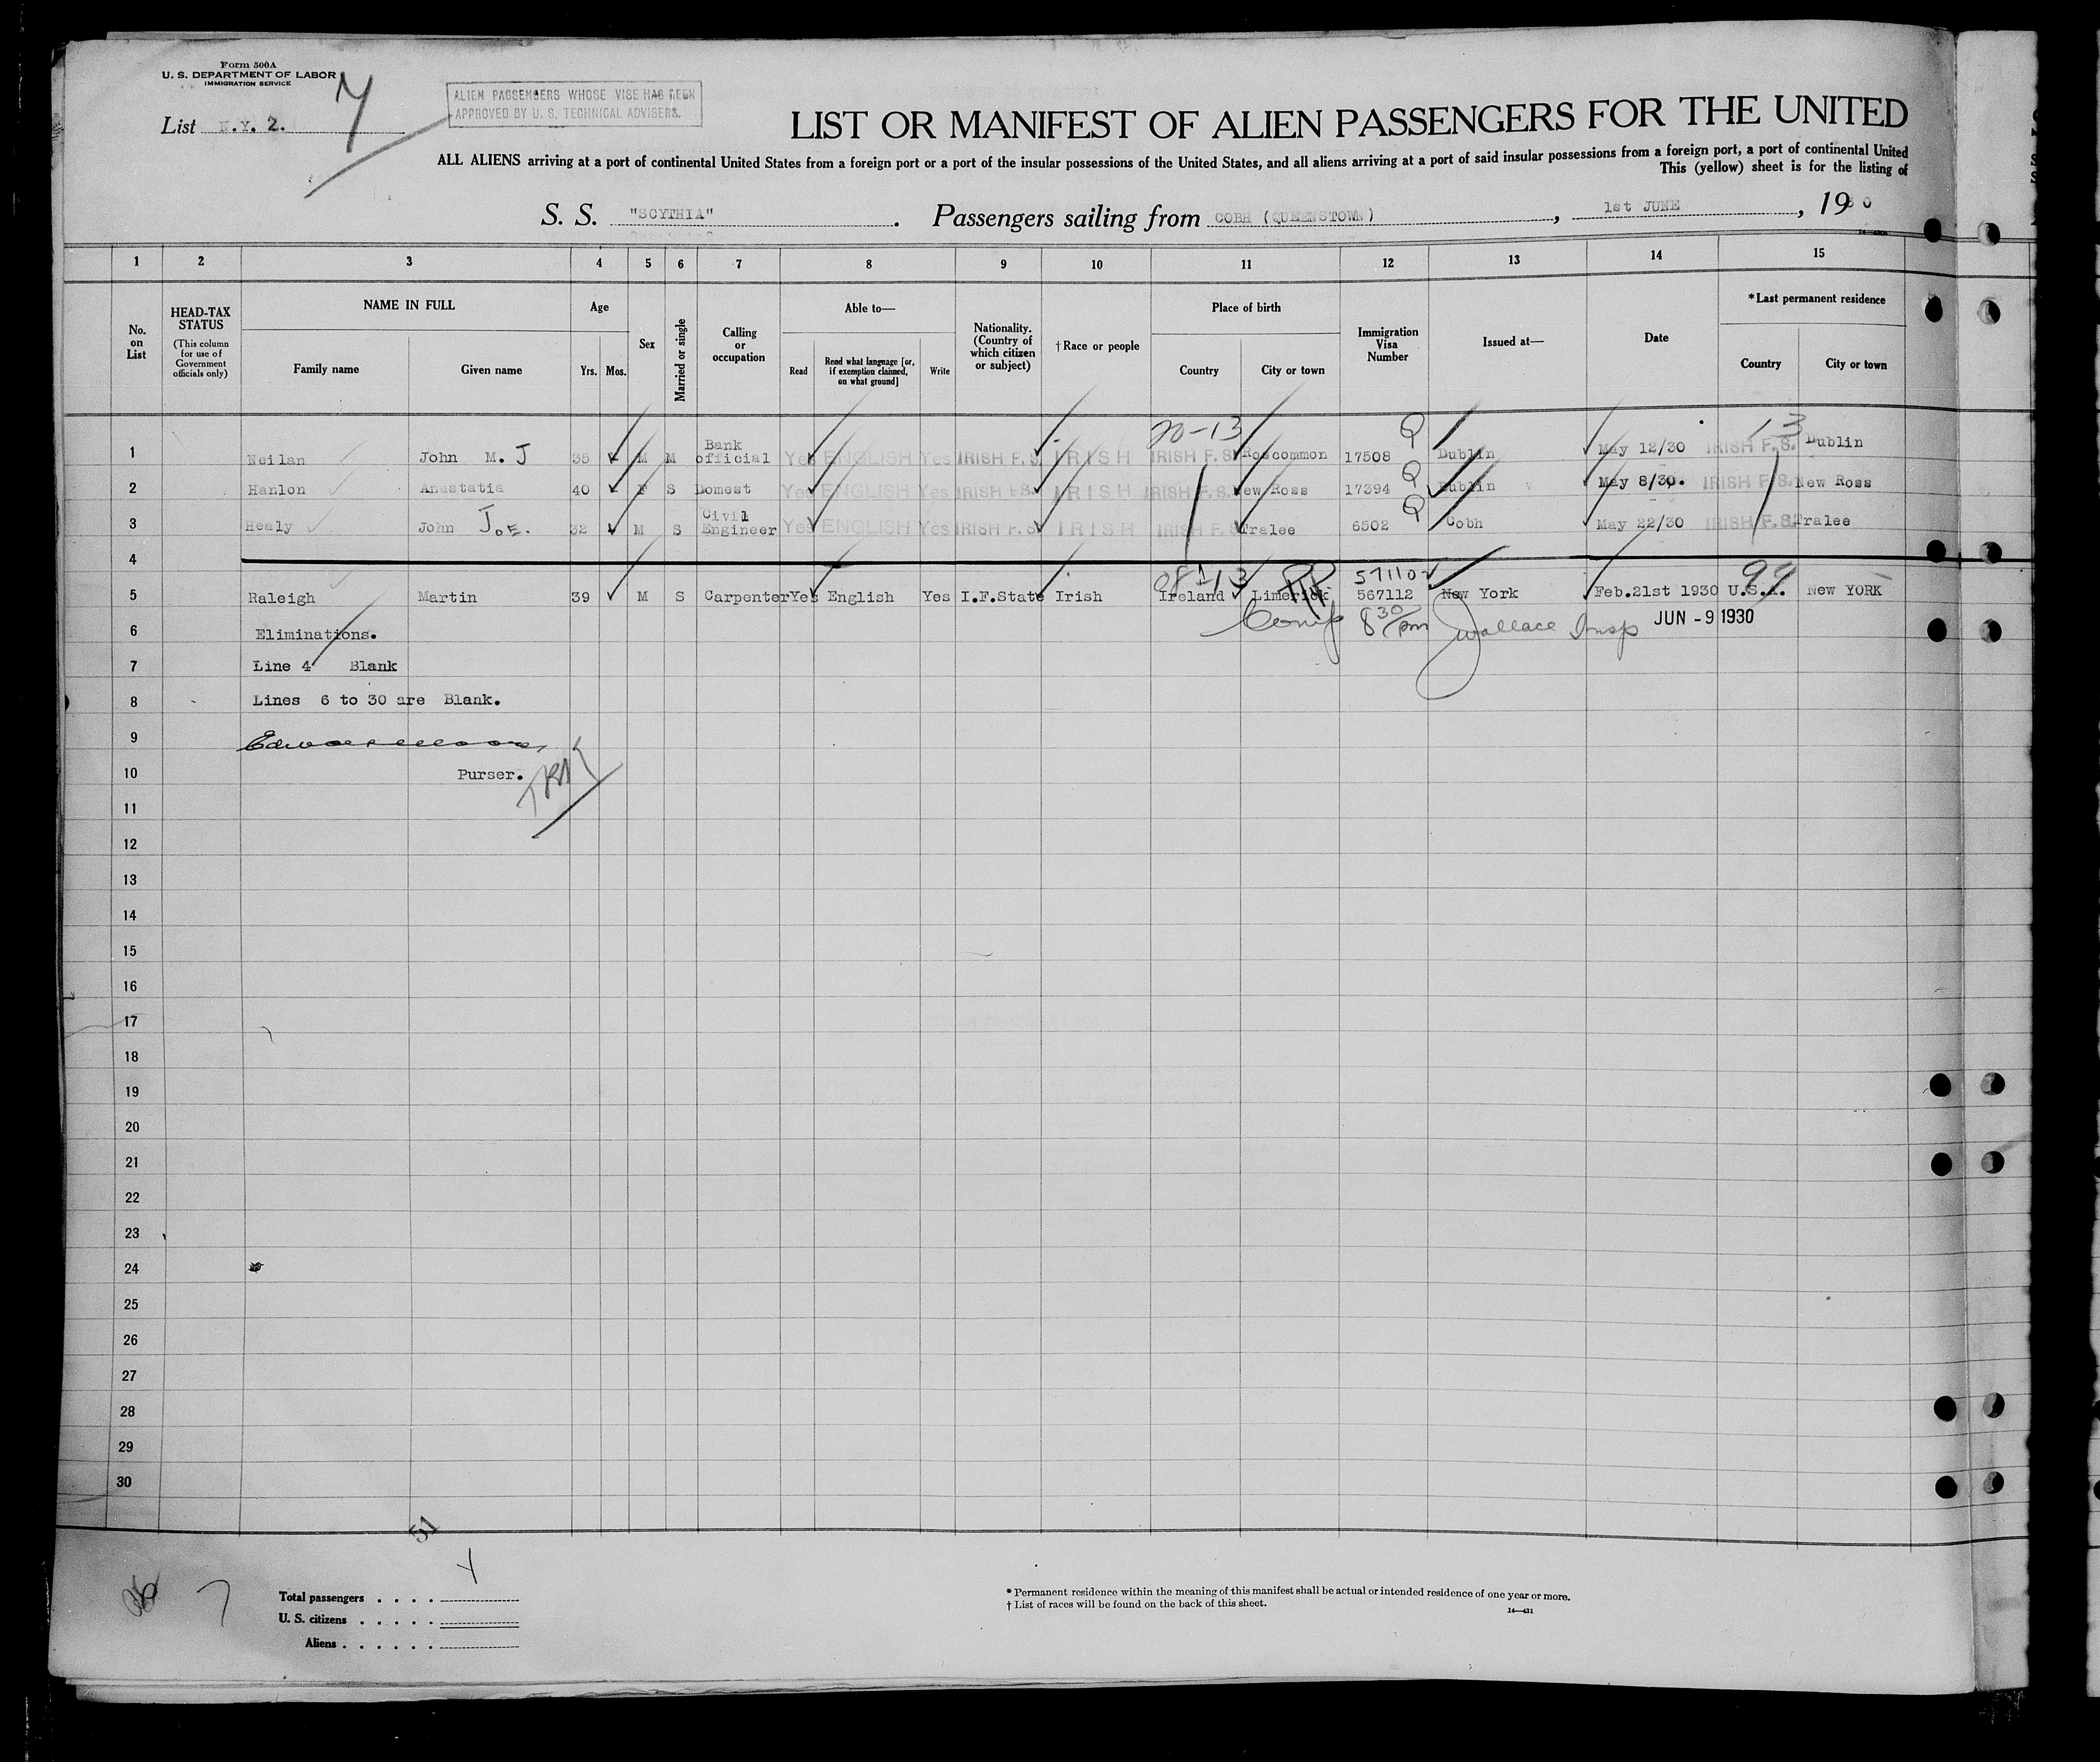 Form 500A
U. S. DEPARTMENT OF LABOR
IMMIGRATION SERVICE
List N.Y. 2.
ALIEN PASSENGERS WHOSE VISE HAS BEEN
APPROVED BY U. S. TECHNICAL ADVISERS.
LIST OR MANIFEST OF ALIEN PASSENGERS FOR THE UNITED
ALL ALIENS arriving at a port of continental United States from a foreign port or a port of the insular possessions of the United States, and all aliens arriving at a port of said insular possessions from a foreign port, a port of continental United
This (yellow) sheet is for the listing of
S. S. "SCYTHIA" . Passengers sailing from COBH (QUEENSTOWN) , 1st JUNE , 1930
1 2 3 4 5 6 7 8 9 10 11 12 13 14 15
No. on List
HEAD-TAX STATUS (This column for use of Government officials only)
NAME IN FULL
Family name Given name
Age
Yrs. Mos.
Sex
Married or single
Calling or occupation
Able to—
Read Read what language [or, if exemption claimed, on what ground] Write
Nationality. (Country of which citizen or subject)
† Race or people
Place of birth
Country City or town
Immigration Visa Number
Issued at—
Date
* Last permanent residence
Country City or town
20-13 Q 13
1 Neilan John M. J 35 M M Bank official Yes ENGLISH Yes IRISH F. S. IRISH IRISH F. S. Roscommon 17508 Dublin May 12/30 IRISH F. S. Dublin
Q
2 Hanlon Anastatia 40 F S Domest Yes ENGLISH Yes IRISH F.S. IRISH IRISH F. S. New Ross 17394 Dublin May 8/30. IRISH F. S. New Ross
Q
3 Healy John JOE. 32 M S Civil Engineer Yes ENGLISH Yes IRISH F. S. IRISH IRISH F. S. Tralee 6502 Cobh May 22/30 IRISH F. S. Tralee
4
571102 99
5 Raleigh Martin 39 M S Carpenter Yes English Yes I.F.State Irish Ireland Limerick 567112 New York Feb.21st 1930 U.S.A. New YORK
6 Eliminations. 8 30/pm Wallace Insp JUN - 9 1930
7 Line 4 Blank
8 Lines 6 to 30 are Blank.
9
10 Purser.
11
12
13
14
15
16
17
18
19
20
21
22
23
24
25
26
27
28
29
30
51
7
Total passengers . . . .
U. S. citizens . . . . .
Aliens . . . . . .
* Permanent residence within the meaning of this manifest shall be actual or intended residence of one year or more.
† List of races will be found on the back of this sheet.
14—431